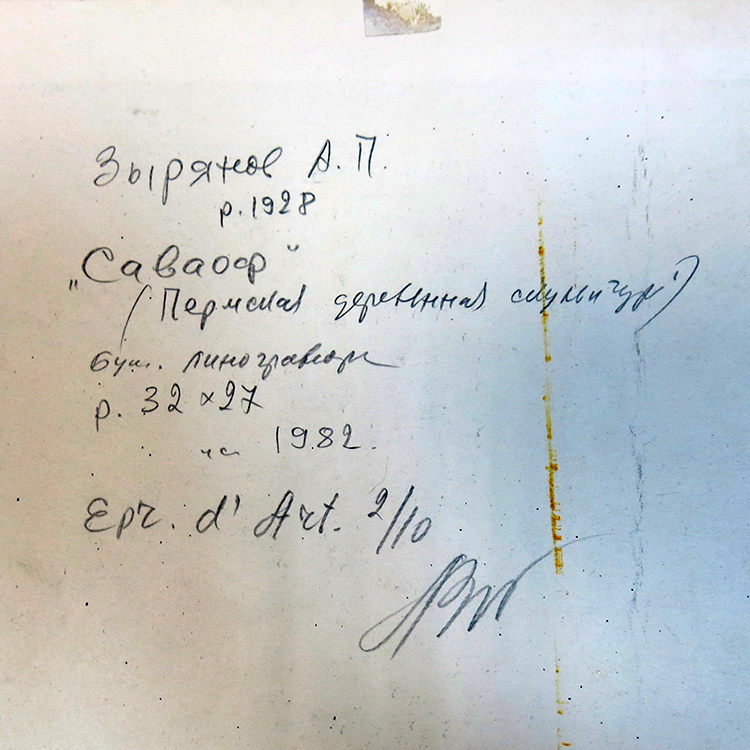 Зырянов А. П.
р. 1928
„Саваоф"
(Пермская деревянная скульптура)
бум. линогравюра
р. 32 × 27
1982.
Epr. d' Art. 2/10